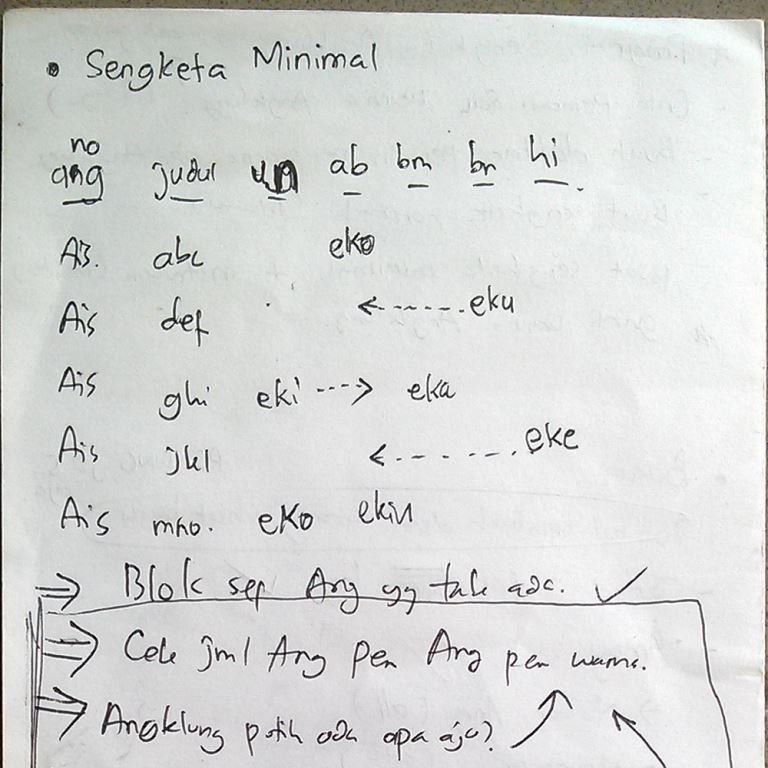 • Sengketa Minimal
no
ang judul un ab bm br hi
AiS. abc eko
Ais def <-----. eku
Ais ghi eki ---> eka
Ais jkl <- - - - - eke
Ais mno. eko ekiu
=> Blok sep Ang yg tak ada. ✓
=> Cek jml Ang per Ang per warna.
=> Angklung putih ada apa aja?